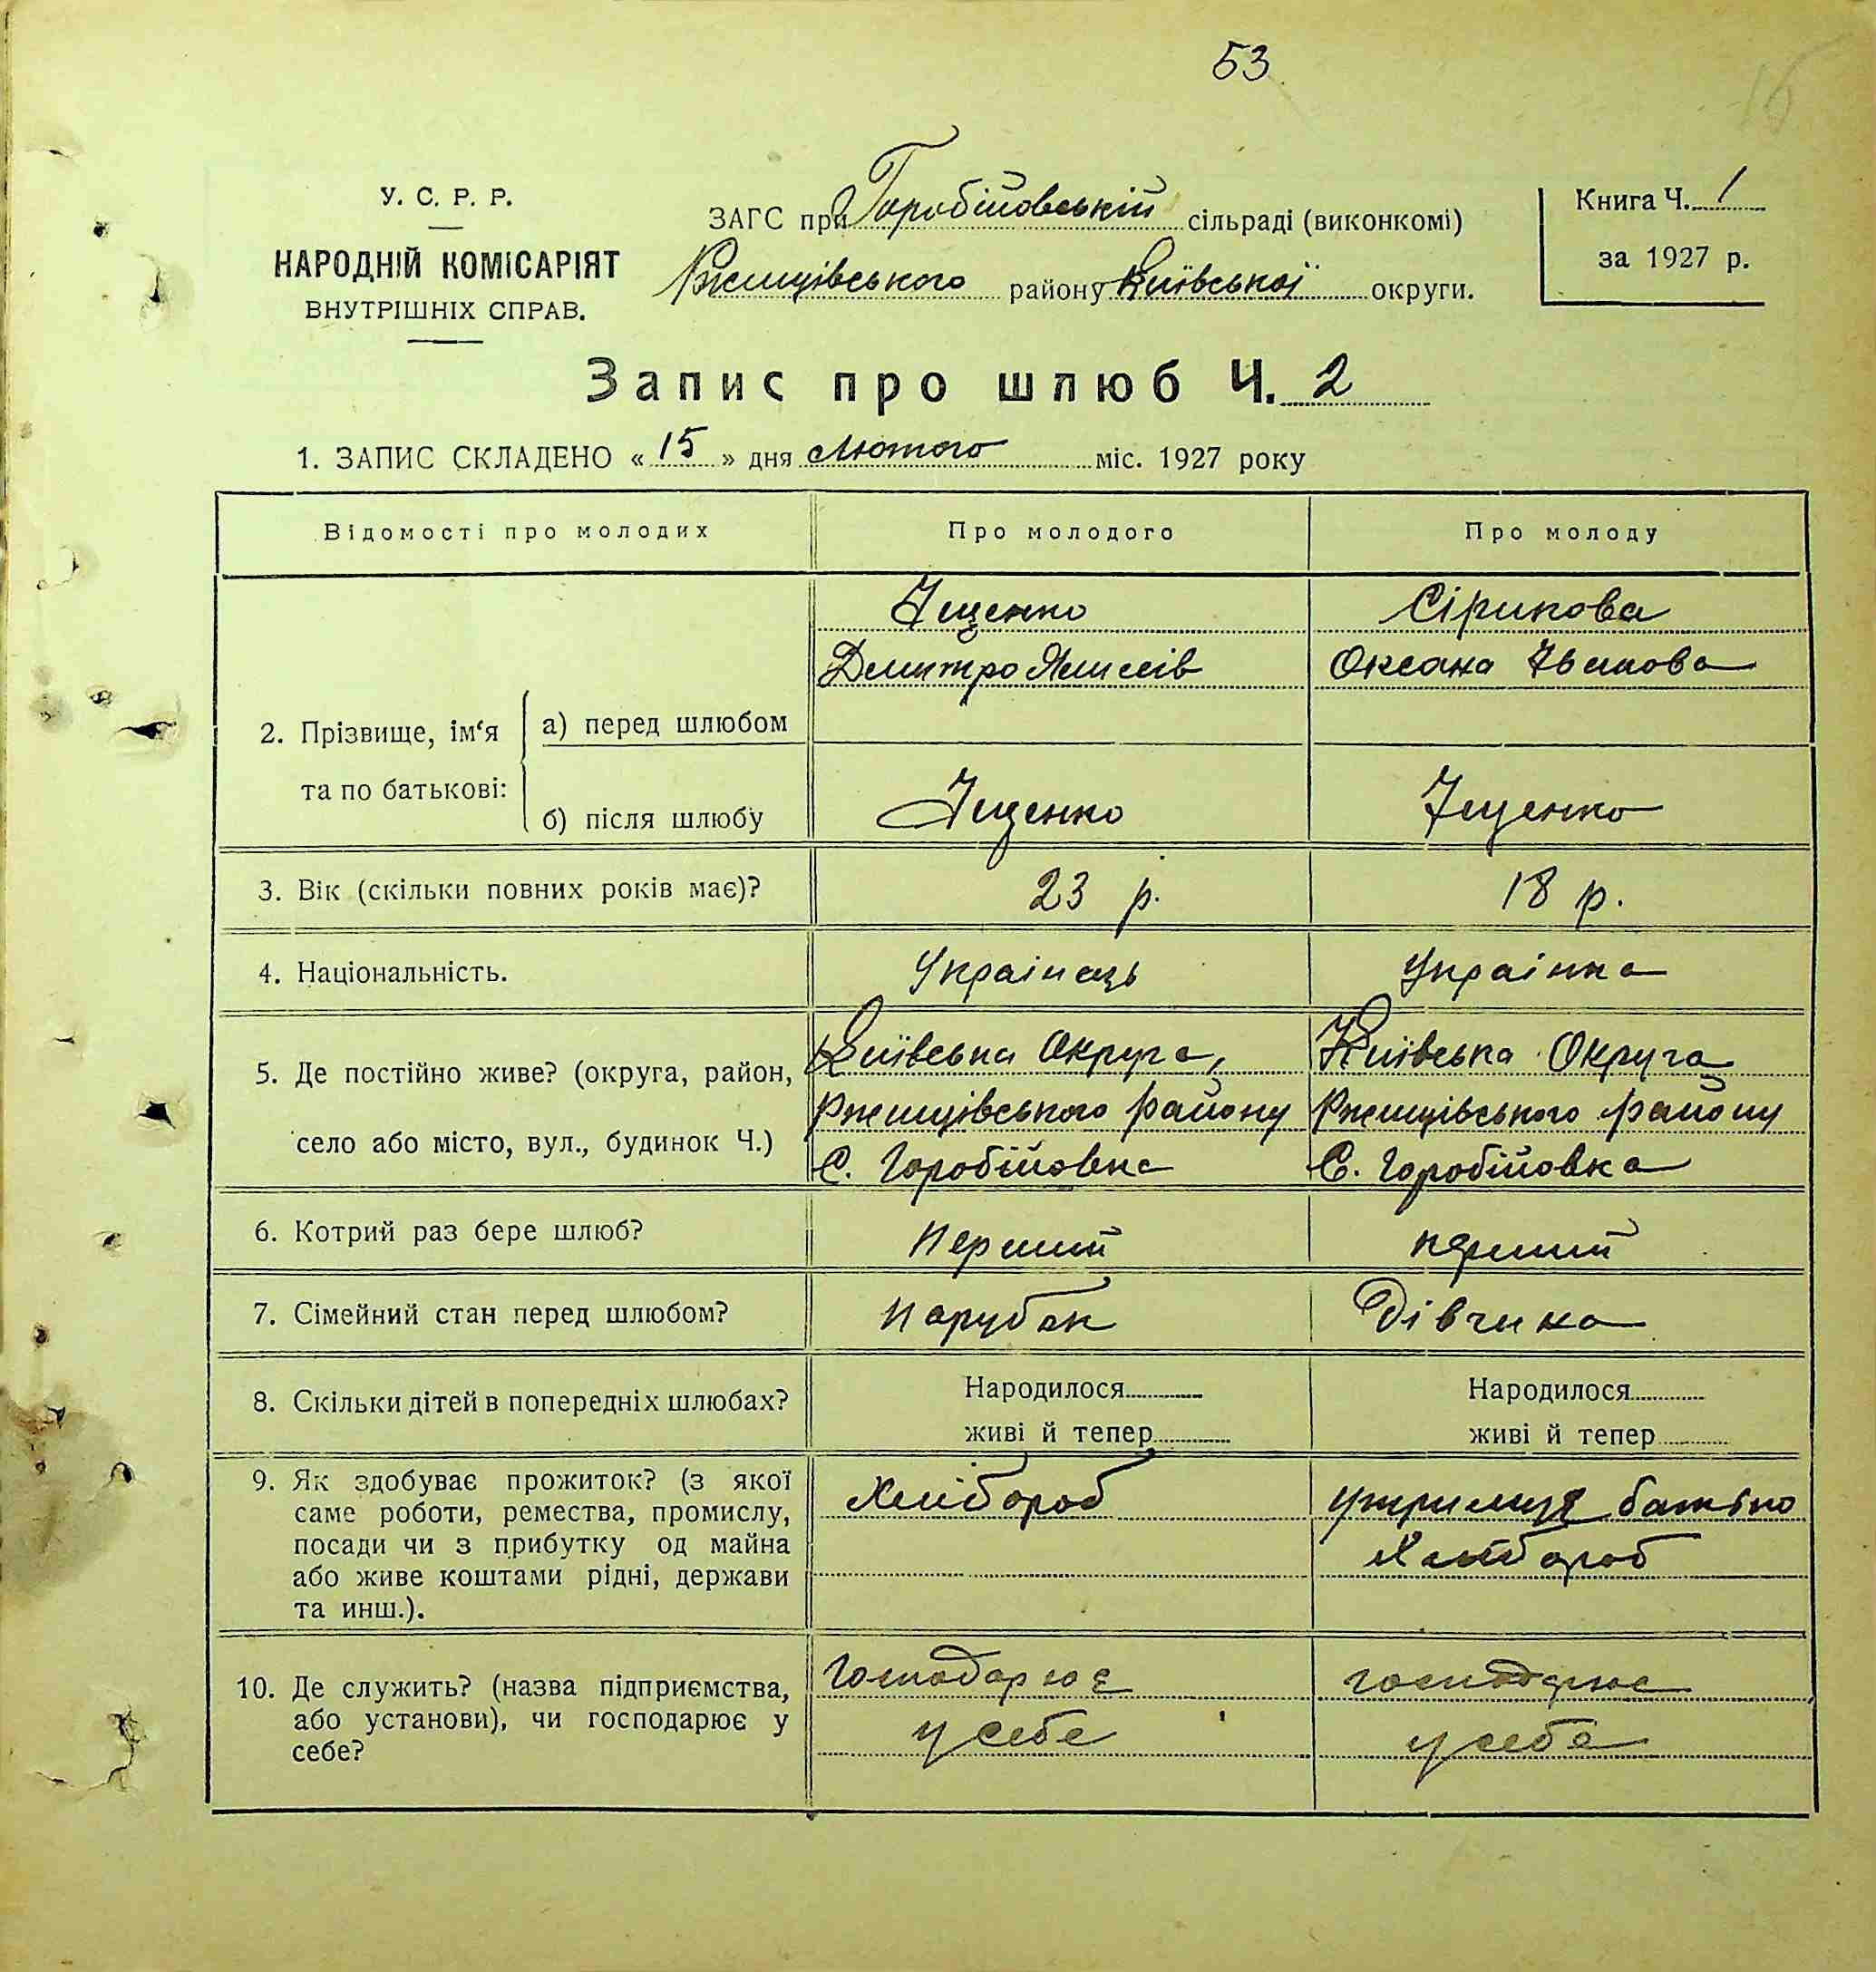 53
16
У. С. Р. Р.
НАРОДНІЙ КОМІСАРІЯТ
ВНУТРІШНІХ СПРАВ.
ЗАГС при Горобіювській сільраді (виконкомі)
Ржищівського району Київської округи.
Книга Ч. 1
за 1927 р.
Запис про шлюб Ч. 2
1. ЗАПИС СКЛАДЕНО « 15 » дня Лютого міс. 1927 року
Відомості про молодих Про молодого Про молоду
2. Прізвище, ім‘я та по батькові:
а) перед шлюбом
Іщенко
Дмитро
Сірикова
Оксана Іванова
б) після шлюбу
Іщенко
Іщенко
3. Вік (скільки повних років має)?
23 р.
18 р.
4. Національність.
Украінець
Украінка
5. Де постійно живе? (округа, район,
село або місто, вул., будинок Ч.)
Київська Округа,
Ржищівського району
С. Горобійовка
Київська Округа
Ржищівського району
С. Горобійовка
6. Котрий раз бере шлюб?
Перший
перший
7. Сімейний стан перед шлюбом?
Парубок
Дівчина
8. Скільки дітей в попередніх шлюбах?
Народилося
живі й тепер
Народилося
живі й тепер
9. Як здобуває прожиток? (з якої
саме роботи, ремества, промислу,
посади чи з прибутку од майна
або живе коштами рідні, держави
та инш.).
Хлібороб
утримує батько
Хлібороб
10. Де служить? (назва підприємства,
або установи), чи господарює у
себе?
Господарює
у себе
господарює
у себе